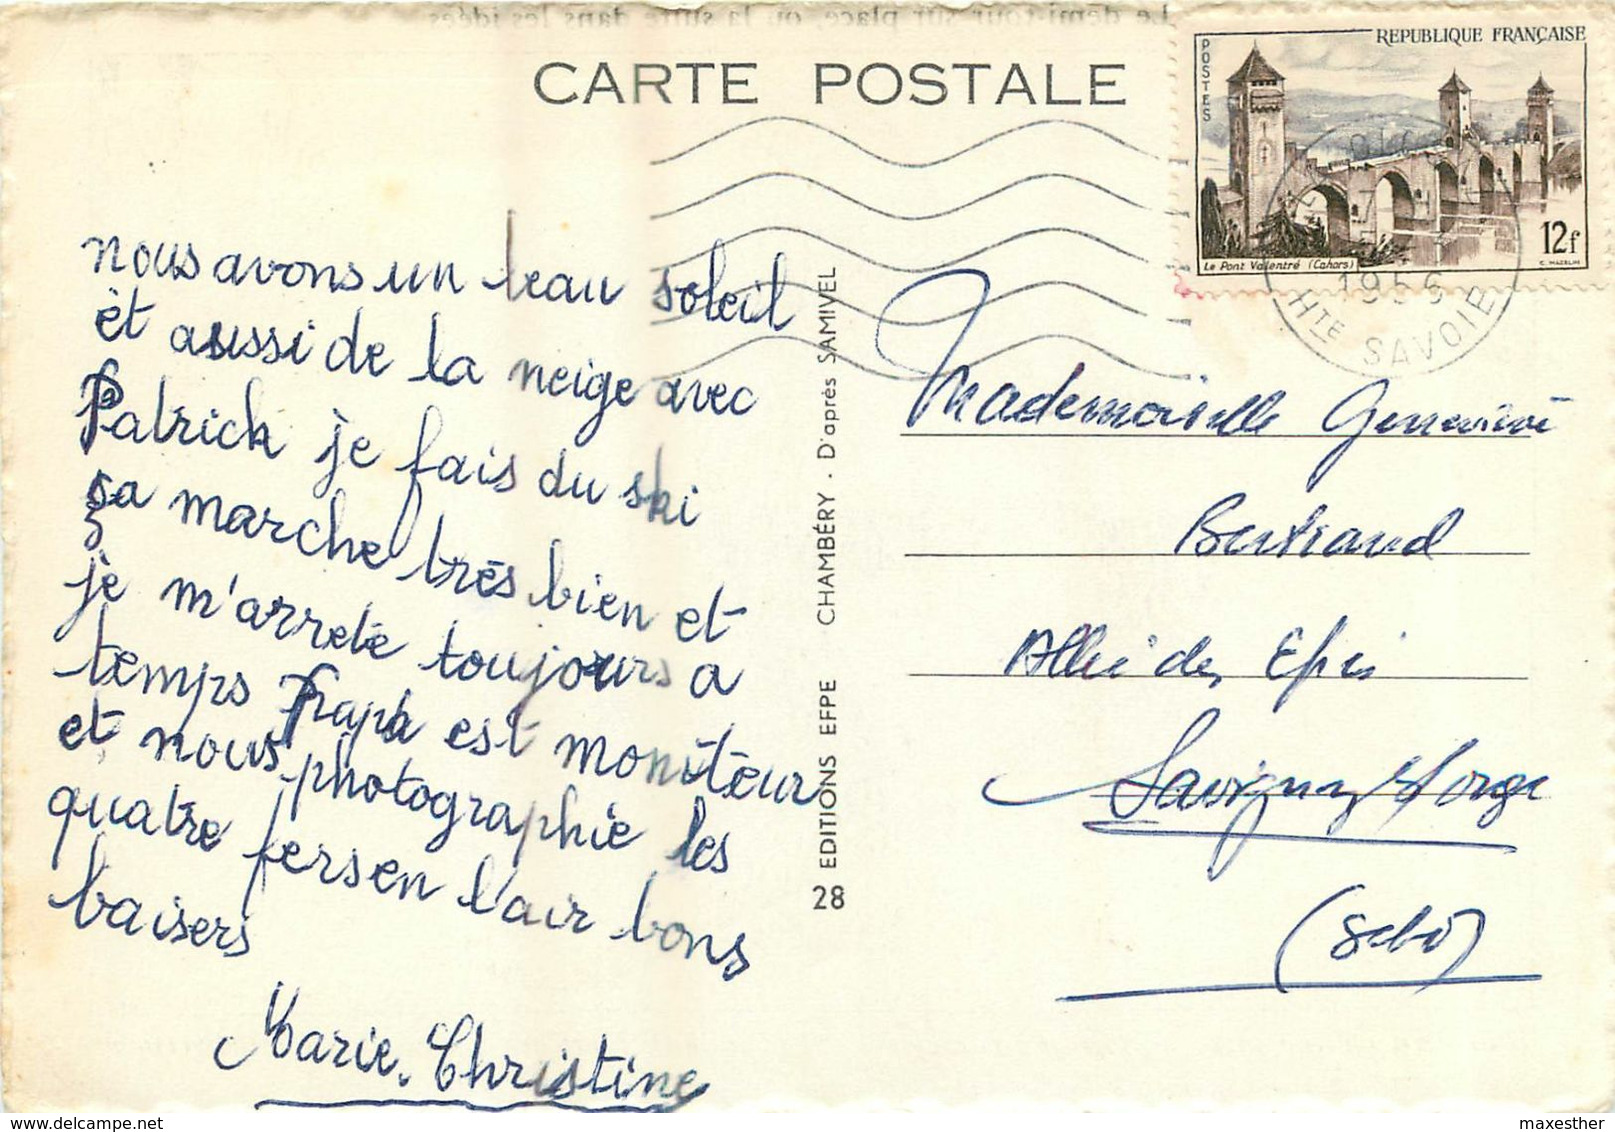 Le demi-tour sur place, ou la suite dans les idées.
CARTE POSTALE
REPUBLIQUE FRANÇAISE
POSTES
12f
Le Pont Valentré (Cahors)
C. MAZELIN
1956
HTE SAVOIE
nous avons un beau soleil
et aussi de la neige avec
Patrick je fais du ski
ça marche très bien et
je m'arrete toujours a
temps Papa est moniteur
et nous photographie les
quatre fers en l'air bons
baisers
Marie-Christine
EDITIONS EFPE CHAMBÉRY · D'après SAMIVEL
28
Mademoiselle Geneviève
Bertrand
Allée des Epis
Savigny s/ Orge
(S et O)
maxesther